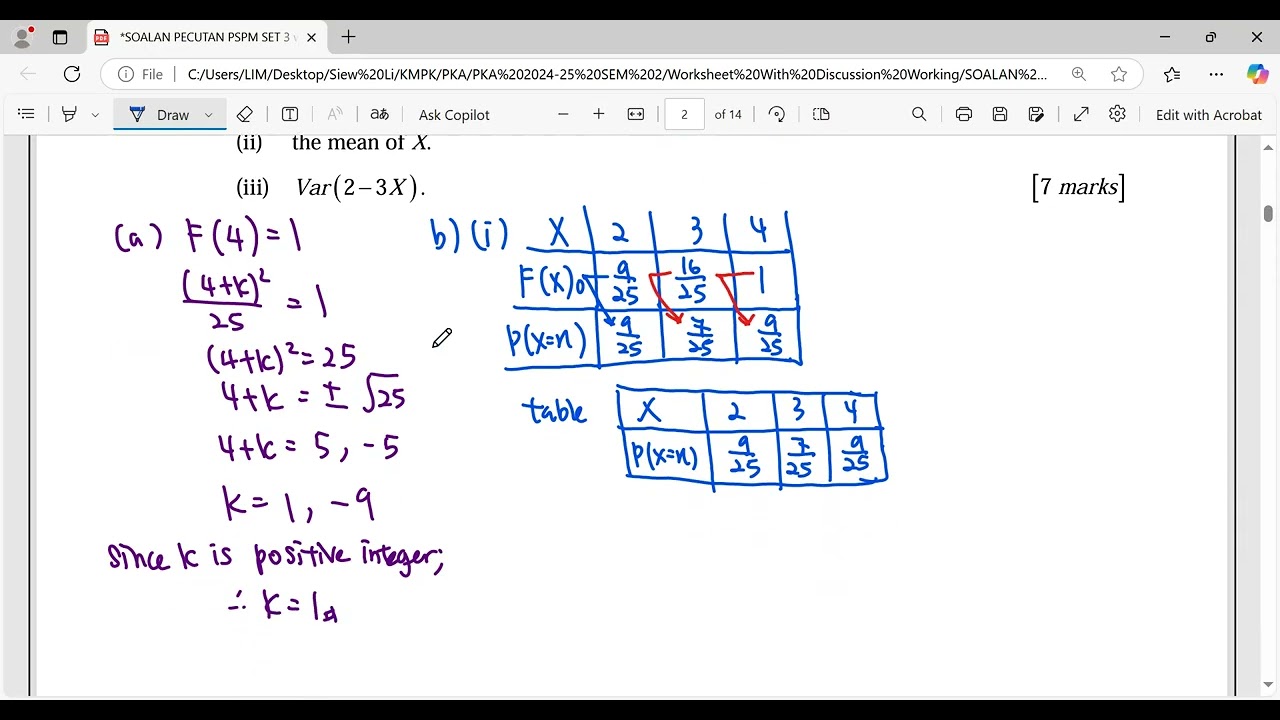 *SOALAN PECUTAN PSPM SET 3
File C:/Users/LIM/Desktop/Siew%20Li/KMPK/PKA/PKA%202024-25%20SEM%202/Worksheet%20With%20Discussion%20Working/SOALAN%2...
Draw aあ Ask Copilot 2 of 14 Edit with Acrobat
(ii) the mean of X.
(iii) Var(2−3X). [7 marks]
(a) F(4)=1
(4+k)²/25 = 1
(4+k)²=25
4+k = ± √25
4+k = 5, -5
k = 1, -9
Since k is positive integer;
∴ k=1
b)(i) X 2 3 4
F(X) 0 9/25 16/25 1
P(X=x) 9/25 7/25 9/25
table X 2 3 4
P(X=x) 9/25 7/25 9/25